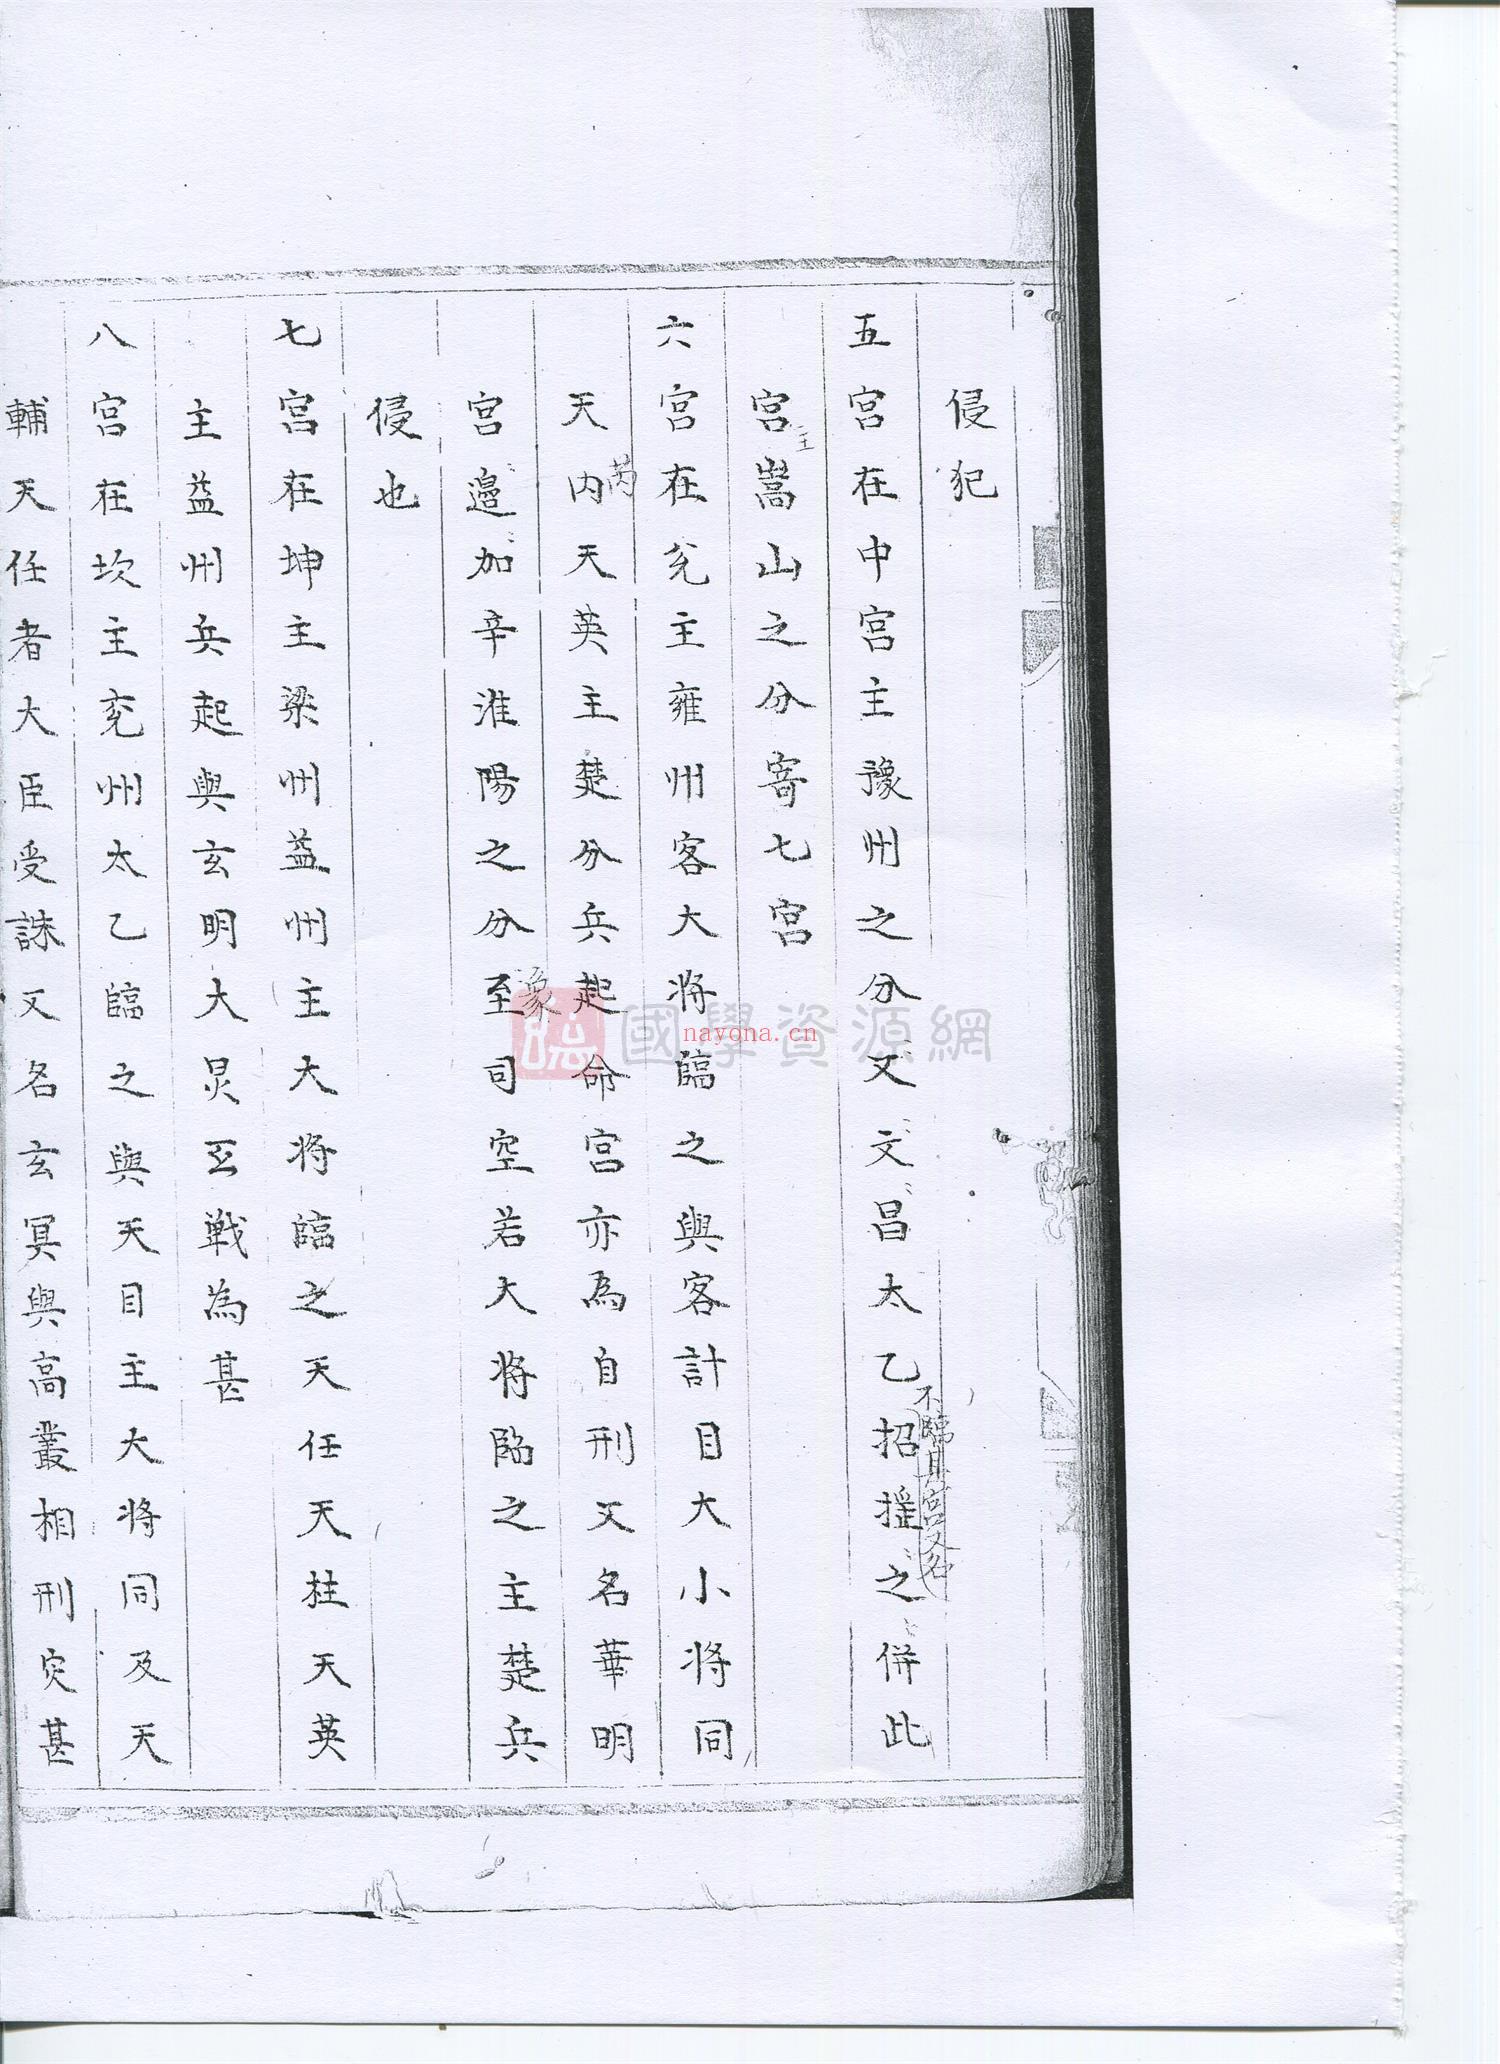 侵犯
五宮在中宮主豫州之分又文昌太乙招搖之併此
不臨其宮又名
宮嵩山之分寄七宮
主
六宮在兊主雍州客大將臨之與客計目大小將同
天內天英主楚分兵起命宮亦為自刑又名華明
芮
宮邊加辛淮陽之分至司空若大將臨之主楚兵
豫
侵也
七宮在坤主梁州益州主大將臨之天任天柱天英
主益州兵起與玄明大炅亙戰為甚
八宮在坎主兖州太乙臨之與天目主大將同及天
輔天任者大臣受誅又名玄冥與高叢相刑灾甚
國學資源網
nayona.cn